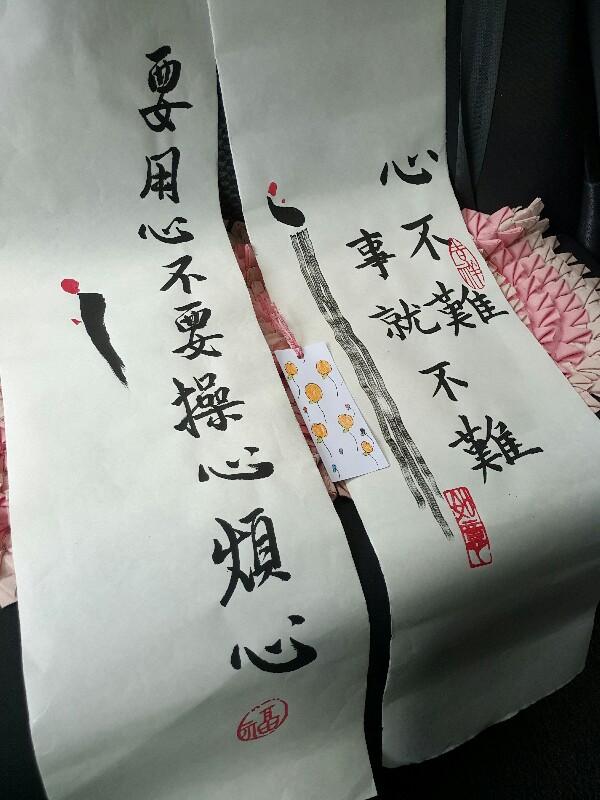 心不難
事就不難
吉祥
要用心不要操心煩心
福